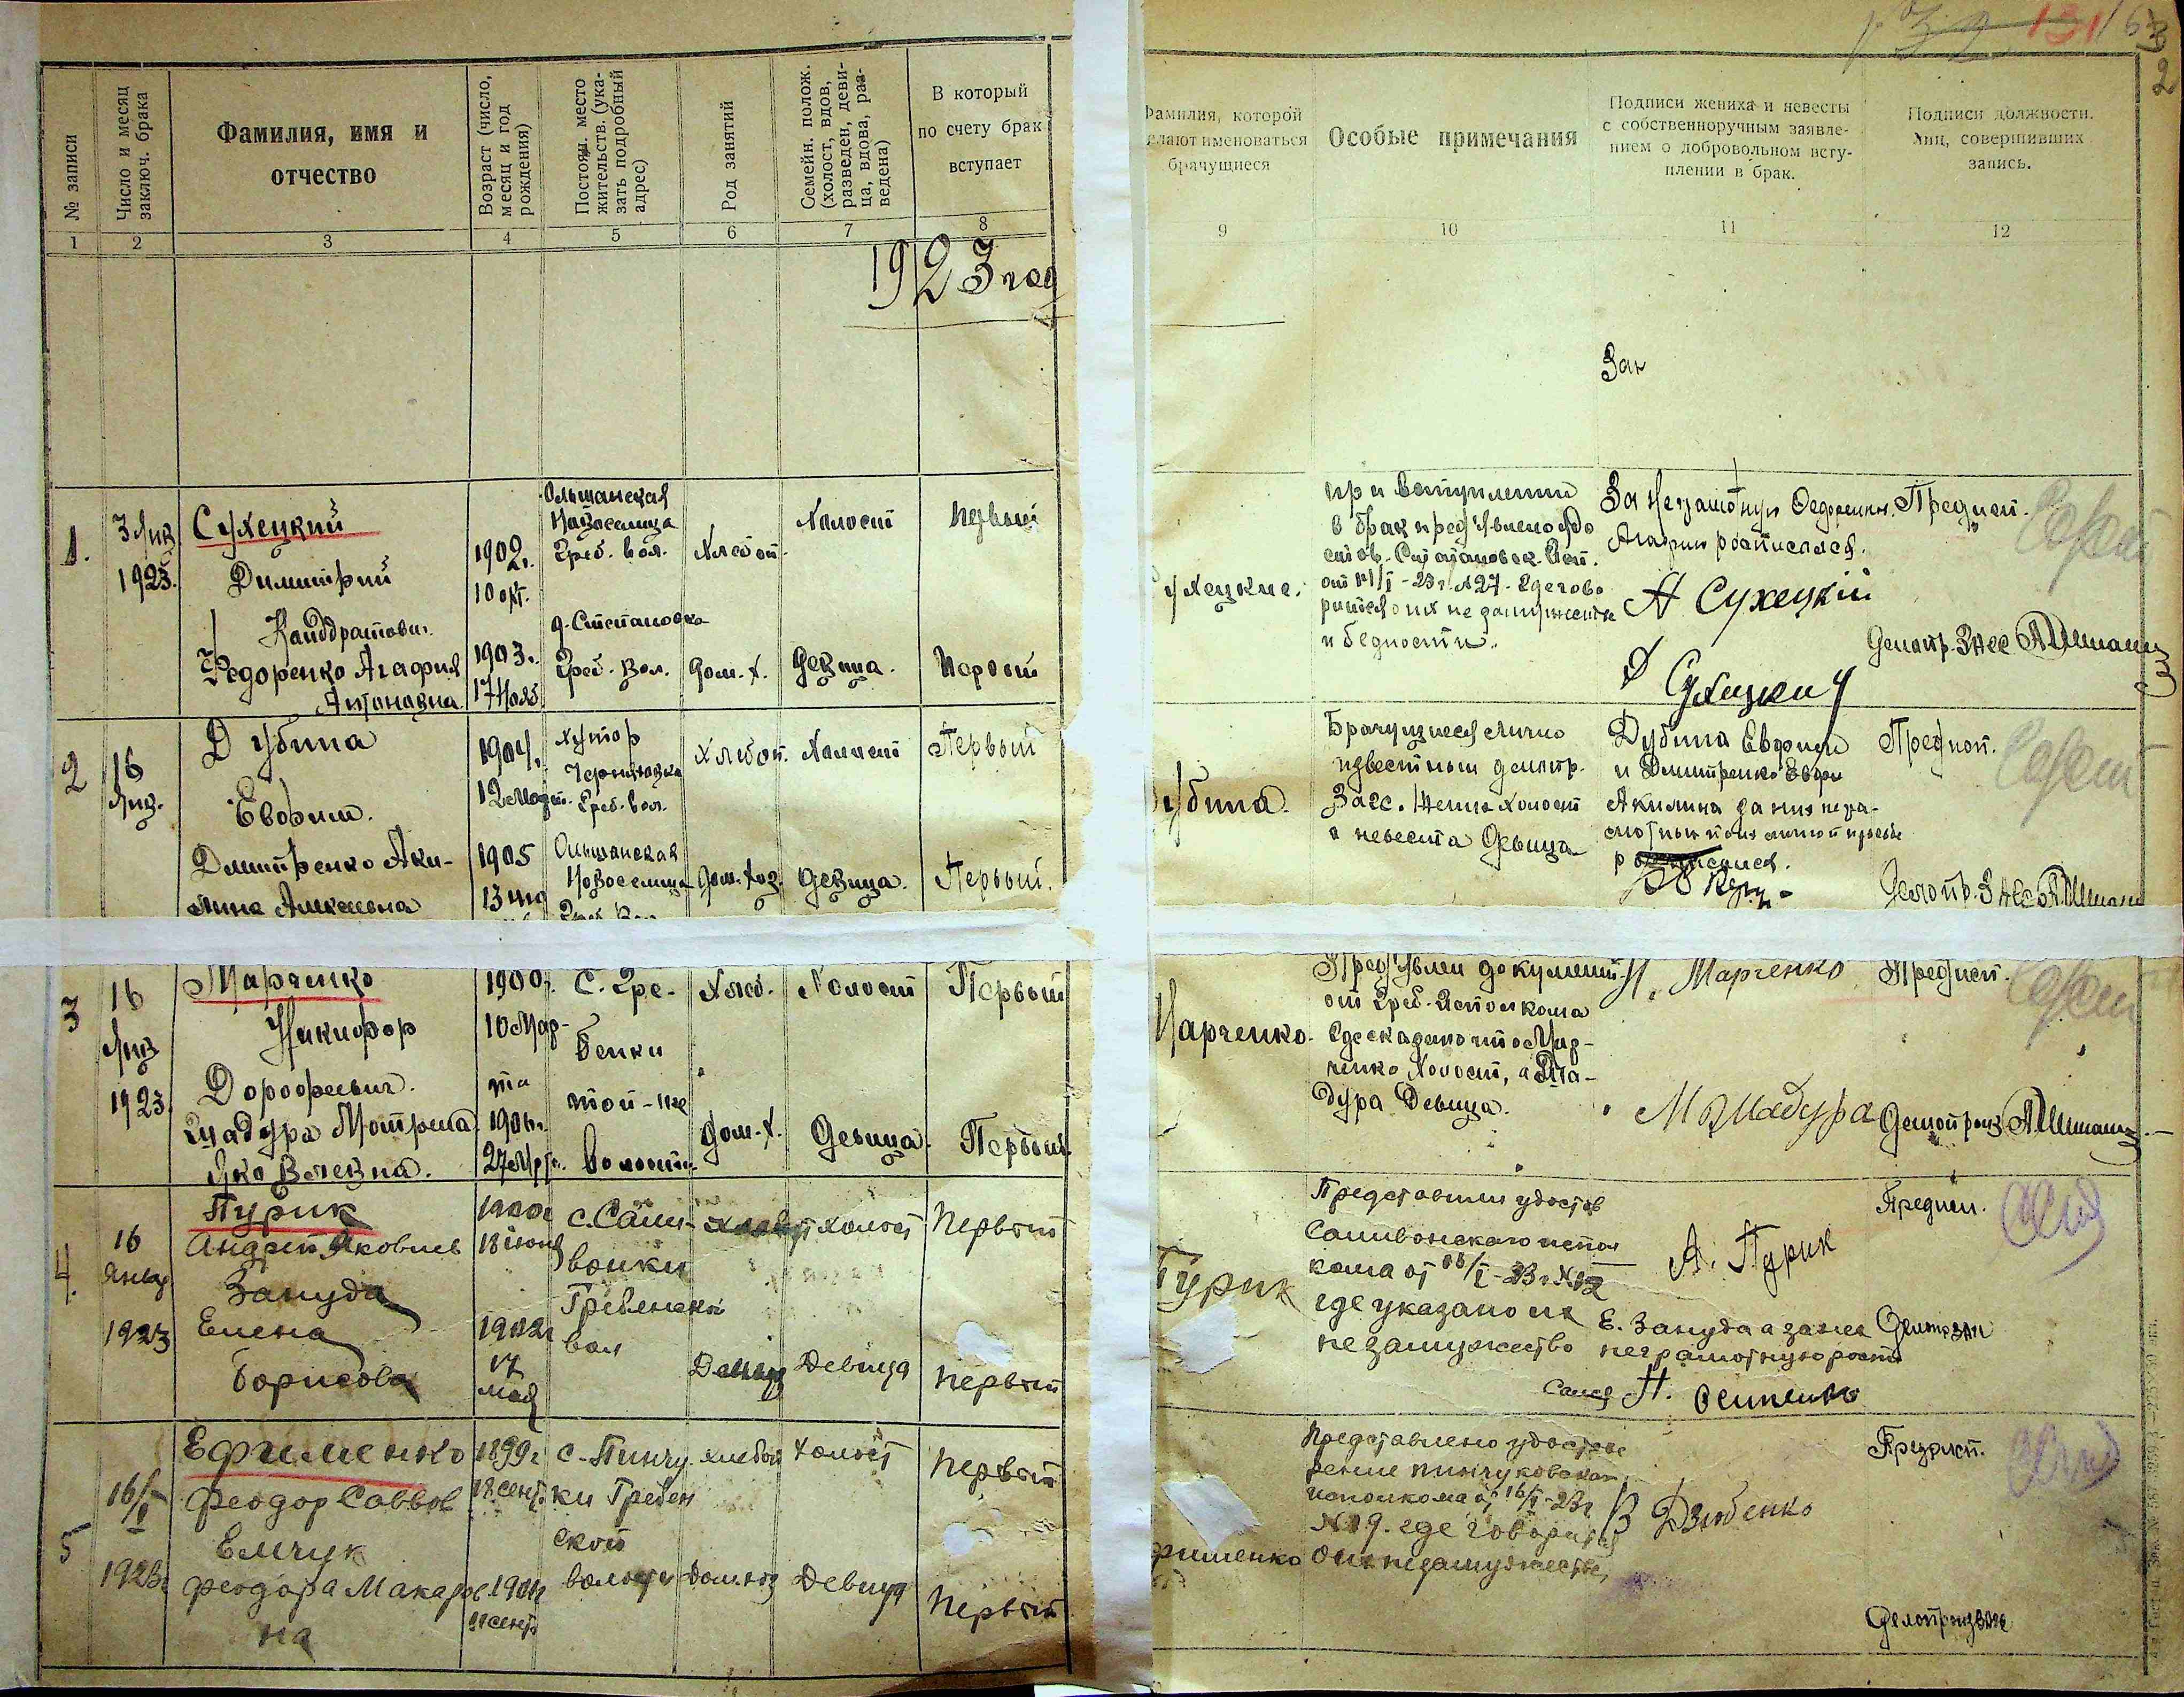 131
63
2
№ записи
Число и месяц
заключ. брака
Фамилия, имя и
отчество
Возраст (число,
месяц и год
рождения)
Постоян. место
жительств. (ука-
зать подробный
адрес)
Род занятий
Семейн. полож.
(холост, вдов,
разведен, деви-
ца, вдова, раз-
ведена)
В который
по счету брак
вступает
Фамилия, которой
желают именоваться
брачущиеся
Особые примечания
Подписи жениха и невесты
с собственноручным заявле-
нием о добровольном всту-
плении в брак.
Подписи должностн.
лиц, совершивших
запись.
1 2 3 4 5 6 7 8 9 10 11 12
1923 год
Зак
1.
3 Янв
1923.
Сухецкий
Димитрий
Кандратович
Федоренко Агафия
Антоновна
1902.
10 окт.
1903.
17 Нояб.
Ольшанская
Новоселица
Греб. вол.
д. Степановка
Греб. Вол.
Хлебоп.
Дом. х.
Холост
Девица.
Первый
Первый
ухецкие.
при вступлении
в брак пред'явлено удо
стов. Степановск. Исп.
от I - 23 г. №27. Где гово
рится о их не замужестве
и бедности.
За неграмотную Федоренко
Агафию росписался.
А Сухецкий
Д Сухицкий
Предисп.
Делопр. Загс А Шиманс
2
16
Янв.
Дубина
Евфим.
Дмитренко Аки-
лина Алексеевна
1904.
12 Март.
1905
13
хутор
Черниговка
Греб. вол.
Ольшанская
Новоселица
Греб. Вол
Хлебоп.
Дом. хоз.
Холост
Девица.
Первый
Первый.
убина.
Брачущиеся лично
известны делопр.
Загс. Жених холост
а невеста Девица
Дубина Евфим
и Дмитренко
Акилина за них негра-
мотных по их личной просьбе
росписался.
Предисп.
Делопр. Загс А Шиман
3
16
Янв
1923.
Марченко
Никифор
Дорофеевич.
Мадура Мотрена
Яковлевна.
1900.
10 Мар-
та
1904.
27 Мрт.
с. Гре-
бенки
той-же
волости
Хлеб.
Дом. х.
Холост
Девица.
Первый
Первый.
Марченко.
Пред'явлен документ
от Греб. Исполкома
Где сказано что Мар-
ченко Холост, а Ма-
дура Девица.
Н. Марченко
М Мадура
Предисп.
Делопроиз А Шиманс
4.
16
Январ
1923
Пурик
Андрей Яковлев
Зануда
Елена
Борисова
1900г
18 июня
1902г
17
мая
с. Сали-
вонки
Гребенской
вол
Хлебоп
Девица
холост
Девица
Первый
первый
Пурик
Представили удостов
Саливонского испол
кома от 16/I - 23 г №12
где указано их
незамужество
А. Пурик
Е. Зануда а за нее
неграмотную роспи
сался Н. Осипенко
Предисп.
Делопроизв
5
16/I
1923г
Ефименко
Феодор Саввов
Емчук
Феодора Макаров
на
1899г
18 сент.
1901г
11 сент
с. Пинчу
ки Гребен
ской
волости
хлебоп
Дом. хоз
холост
Девица
первый
первый
фименко
Представлено удостове
рение Пинчуковского
исполкома от 16/I - 23г
№19. где говорится
о их незамужестве,
В Дзюбенко
Предисп.
Делопроизв